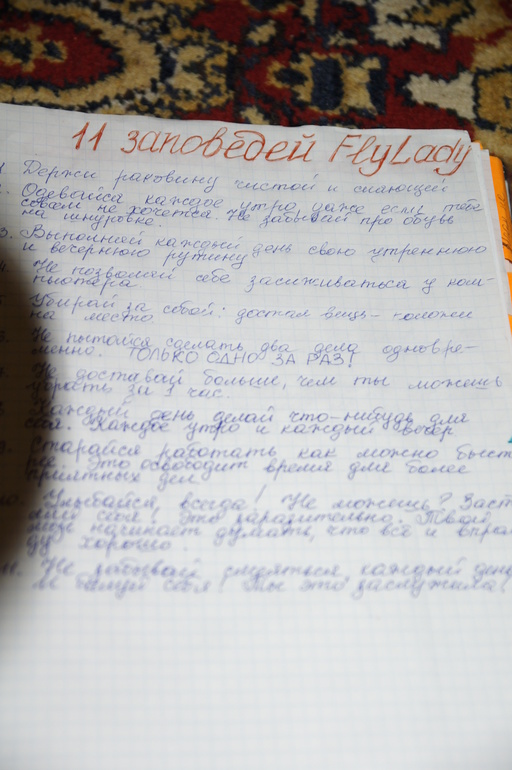 11 заповедей FlyLady
Держи раковину чистой и сияющей
Одевайся каждое утро, даже если тебе
совсем не хочется. Не забывай про обувь
на шнуровке.
3. Выполняй каждый день свою утреннюю
и вечернюю рутину
Не позволяй себе засиживаться у ком-
пьютера
Убирай за собой: достал вещь - положи
на место
Не пытайся сделать два дела одновре-
менно. ТОЛЬКО ОДНО ЗА РАЗ!
Не доставай больше, чем ты можешь
убрать за 1 час.
Каждый день делай что-нибудь для
себя. Каждое утро и каждый вечер
Старайся работать как можно быст
рее. Это освободит время для более
приятных дел
Улыбайся, всегда! Не можешь? Заст
себя! Это заразительно. Твой
начинает думать, что всё и впра
ду хорошо
11. Не забывай смеяться каждый день
И балуй себя! Ты это заслужила!